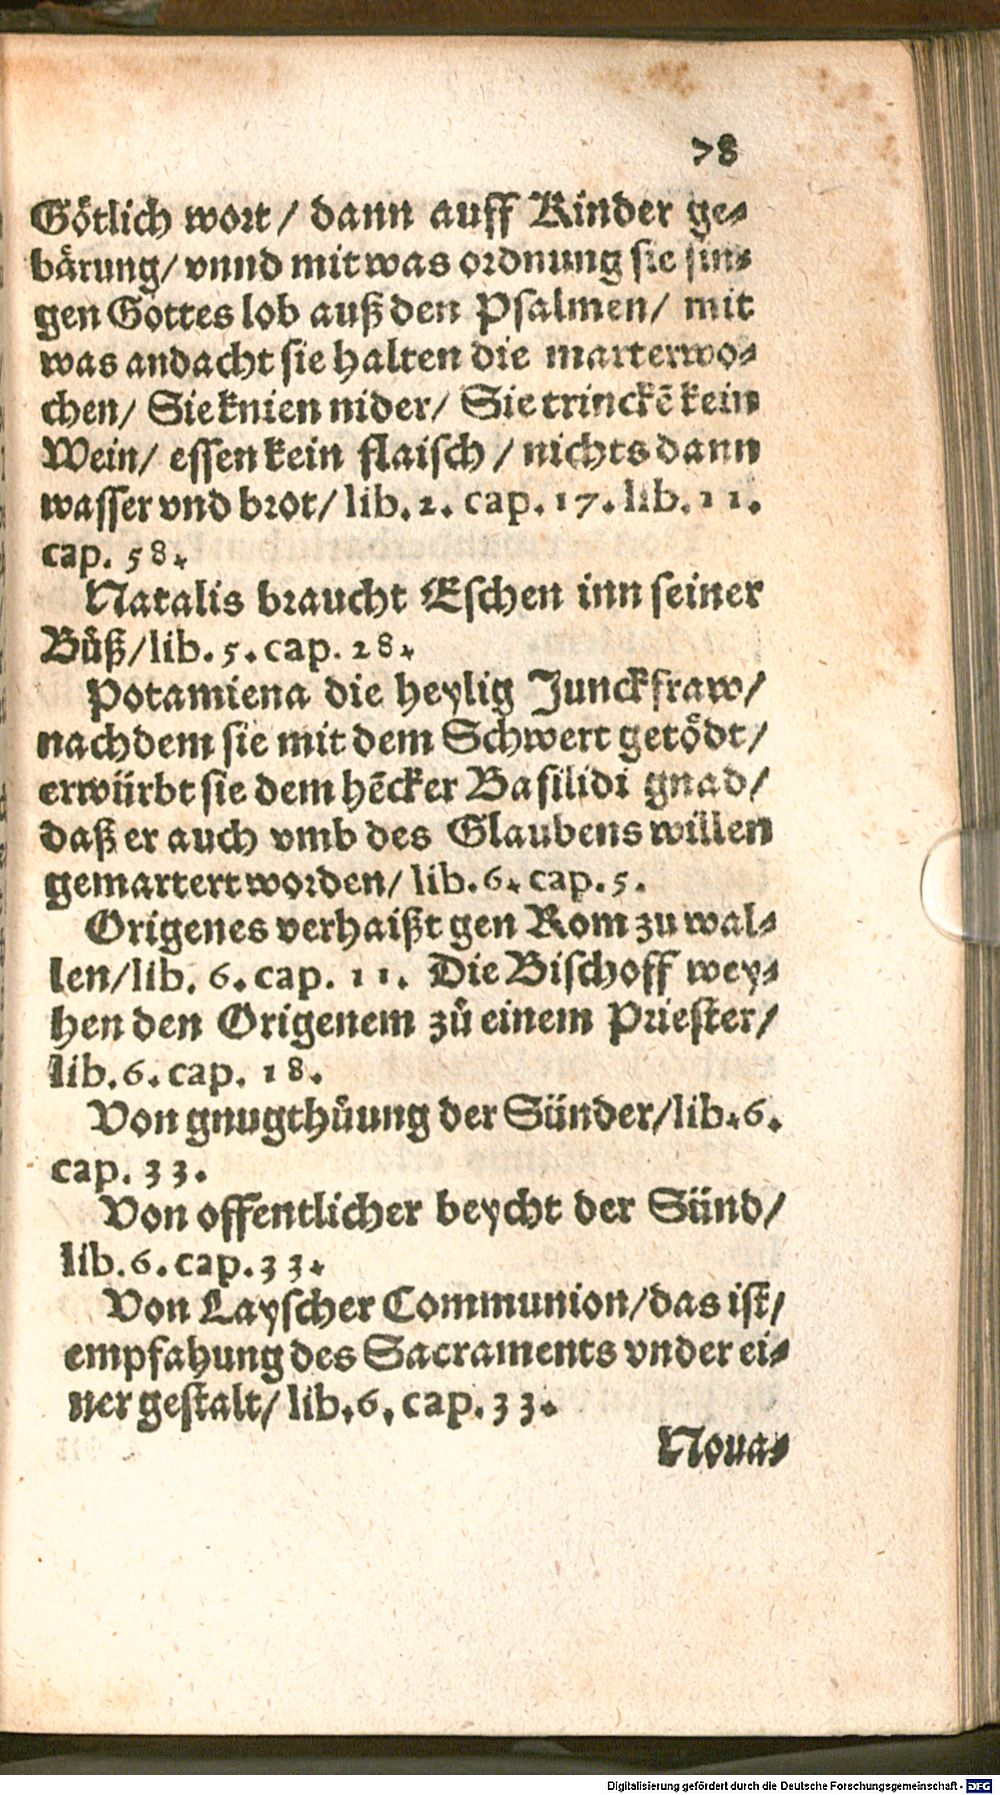 78
Götlich wort / dann auff Kinder ge⸗
bärung / vnnd mit was ordnung sie sin⸗
gen Gottes lob auß den Psalmen / mit
was andacht sie halten die marterwo⸗
chen / Sie knien nider / Sie trinckẽ kein
Wein / essen kein flaisch / nichts dann
wasser vnd brot / lib. 2. cap. 17. lib. 11.
cap. 58.
Natalis braucht Eschen inn seiner
Bůß / lib. 5. cap. 28.
Potamiena die heylig Junckfraw /
nachdem sie mit dem Schwert getödt /
erwürbt sie dem hẽcker Basilidi gnad /
daß er auch vmb des Glaubens willen
gemartert worden / lib. 6. cap. 5.
Origenes verhaißt gen Rom zu wal⸗
len / lib. 6. cap. 11. Die Bischoff wey⸗
hen den Origenem zů einem Priester /
lib. 6. cap. 18.
Von gnugthůung der Sünder / lib. 6.
cap. 33.
Von offentlicher beycht der Sünd /
lib. 6. cap. 33.
Von Layscher Communion / das ist /
empfahung des Sacraments vnder ei⸗
ner gestalt / lib. 6. cap. 33.
Noua⸗
Digitalisierung gefördert durch die Deutsche Forschungsgemeinschaft - DFG